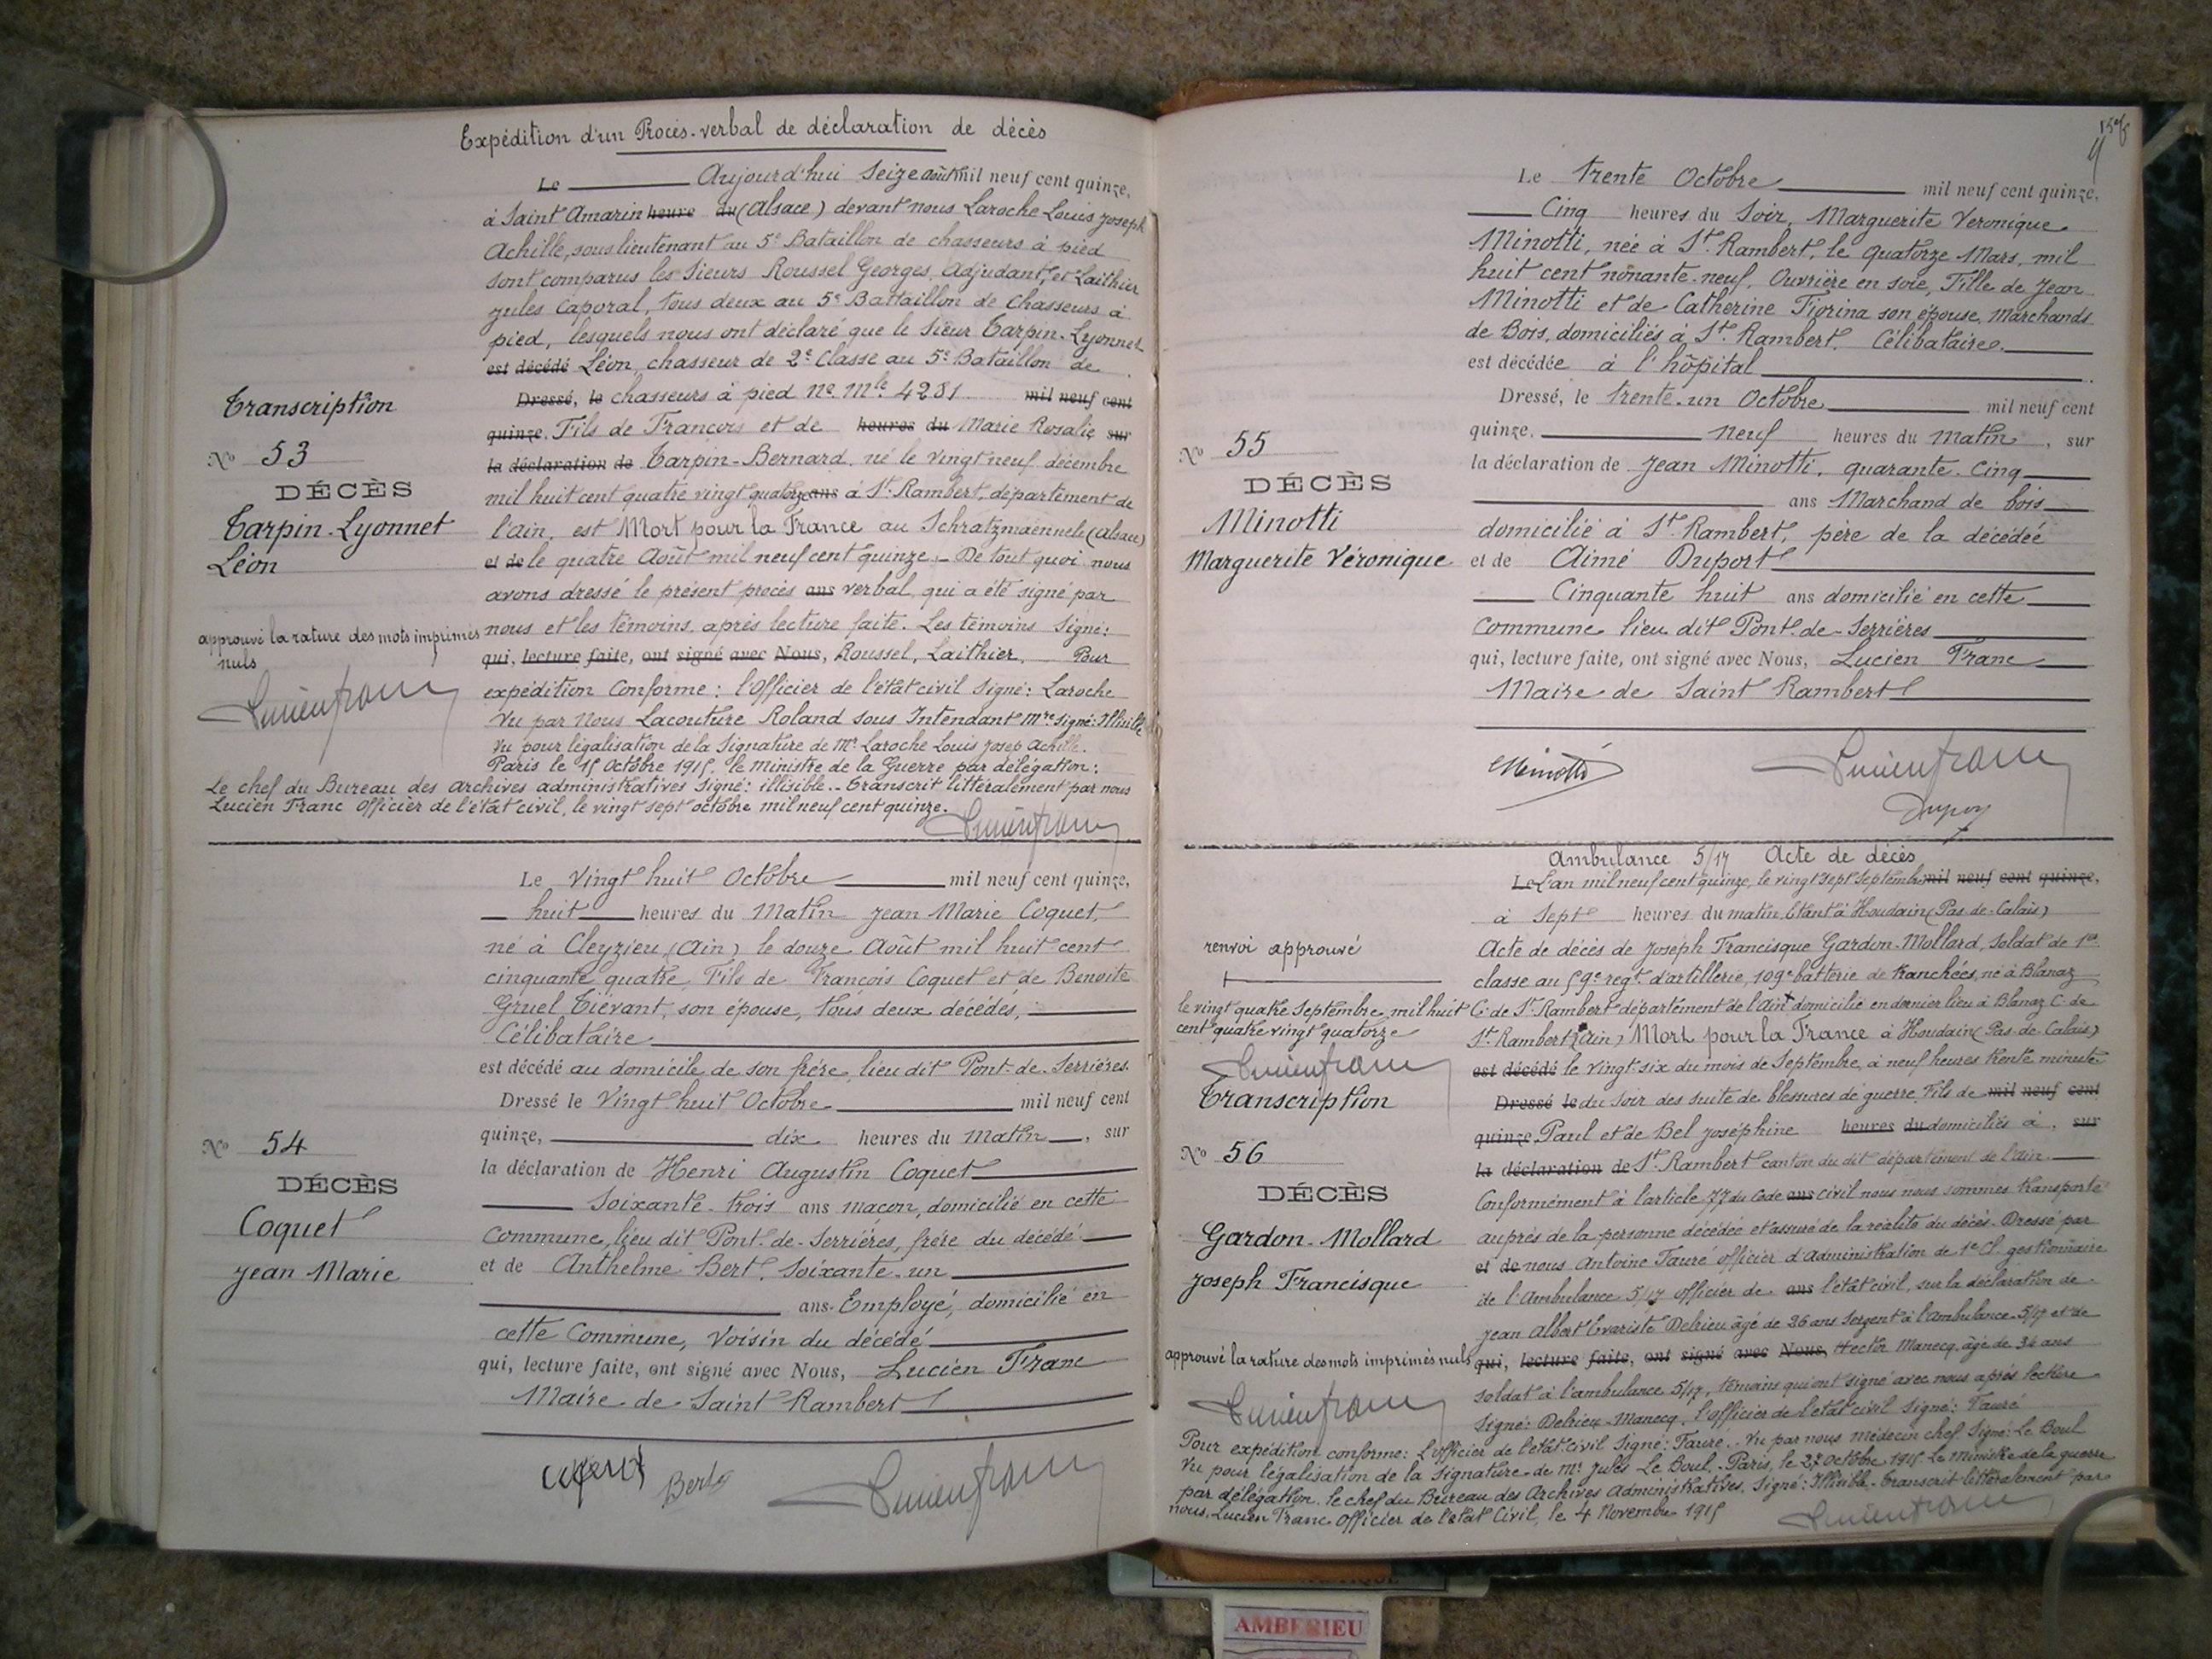 Expédition d'un Procès-verbal de déclaration de décès
Le Aujourd'hui Seize août mil neuf cent quinze,
à Saint Amarin heure du (Alsace) devant nous Laroche Louis Joseph
Achille, sous lieutenant au 5e Bataillon de chasseurs à pied
sont comparus les sieurs Roussel Georges, Adjudant, et Laithier
Jules Caporal, tous deux au 5e Battaillon de Chasseurs à
pied, lesquels nous ont déclaré que le sieur Tarpin-Lyonnet
est décédé Léon, chasseur de 2e Classe au 5e Bataillon de
Transcription
Dressé, le chasseurs à pied No Mle 4281 mil neuf cent
quinze. Fils de Francois et de heures du Marie Rosalie sur
No 53
la déclaration de Tarpin-Bernard, né le vingt neuf décembre
DÉCÈS
mil huit cent quatre vingt quatorze ans à St Rambert, département de
Tarpin-Lyonnet
l'ain, est Mort pour la France au Schratzmaennele (alsace)
Léon
et de le quatre Août mil neuf cent quinze. - De tout quoi nous
avons dressé le présent procès ans verbal, qui a été signé par
approuvé la rature des mots imprimés
nuls
nous et les témoins après lecture faite. Les témoins Signé:
qui, lecture faite, ont signé avec Nous, Roussel, Laithier, Pour
Lucien Franc
expédition Conforme: l'Officier de l'état civil Signé: Laroche
Vu par Nous Lacouture Roland sous Intendant Mre signé: Illisible
Vu pour légalisation de la Signature de Mr Laroche Louis Josep Achille.
Paris le 15 Octobre 1915, le ministre de la Guerre par délégation:
Le chef du Bureau des Archives administratives Signé: illisible. - Transcrit littéralement par nous
Lucien Franc Officier de l'état civil, le vingt sept octobre mil neuf cent quinze.
Lucien Franc
Le Vingt huit Octobre mil neuf cent quinze,
huit heures du Matin Jean Marie Coquet,
né à Cleyzieu (Ain) le douze Août mil huit cent
cinquante quatre, Fils de François Coquet et de Benoite
Gruel Tiévant, son épouse, tous deux décédés,
Célibataire
est décédé au domicile de son frère, lieu dit Pont-de-Serrières.
Dressé le Vingt huit Octobre mil neuf cent
quinze, dix heures du Matin, sur
No 54
la déclaration de Henri Augustin Coquet
DÉCÈS
Soixante-trois ans macon, domicilié en cette
Coquet
Commune, lieu dit Pont-de-Serrières, frère du décédé
Jean Marie
et de Anthelme Bert, Soixante-un
ans Employé, domicilié en
cette Commune, Voisin du décédé
qui, lecture faite, ont signé avec Nous, Lucien Franc
Maire de Saint Rambert
Coquet Bert Lucien Franc
Le Trente Octobre mil neuf cent quinze,
Cinq heures du Soir, Marguerite Veronique
Minotti, née à St Rambert, le quatorze Mars, mil
huit cent nonante-neuf, Ouvrière en soie, Fille de Jean
Minotti et de Catherine Fiorina son épouse, Marchands
de Bois, domiciliés à St Rambert. Célibataire.
est décédée à l'hôpital
Dressé, le trente-un Octobre mil neuf cent
quinze, neuf heures du matin, sur
No 55
la déclaration de Jean Minotti, quarante-Cinq
DÉCÈS
ans Marchand de bois
Minotti
domicilié à St Rambert, père de la décédée
Marguerite Véronique
et de Aimé Duport
Cinquante huit ans domicilié en cette
Commune lieu dit Pont-de-Serrières
qui, lecture faite, ont signé avec Nous, Lucien Franc
Maire de Saint Rambert
Minotti Lucien Franc
Ambulance 5/17 Acte de décès
Le L'an mil neuf cent quinze, le vingt sept Septembre mil neuf cent quinze,
à Sept heures du matin, Etant à Houdain (Pas-de-Calais)
renvoi approuvé
Acte de décès de Joseph Francisque Gardon-Mollard, Soldat de 1re
classe au 59e regt d'artillerie, 109e batterie de tranchées, né à Blanaz
le vingt quatre Septembre mil huit
cent quatre vingt quatorze
C. de St Rambert département de l'ain domicilié en dernier lieu à Blanaz C. de
St Rambert (Ain) Mort pour la France à Houdain (Pas-de-Calais)
Lucien Franc
est décédé le vingt-six du mois de Septembre, à neuf heures trente minutes
Transcription
Dressé le du Soir des suite de blessures de guerre, Fils de mil neuf cent
quinze Paul et de Bel Joséphine heures du domiciliés à, sur
No 56
la déclaration de St Rambert canton du dit département de l'ain.
DÉCÈS
Conformément à l'article 77 du Code ans civil nous nous sommes transporté
Gardon-Mollard
auprès de la personne décédée et assuré de la réalité du décès. Dressé par
Joseph Francisque
et de nous Antoine Fauré officier d'Administration de 1e Cl. gestionnaire
de l'Ambulance 5/17 officier de ans l'état civil, sur la déclaration de
Jean Albert Evariste Delrieu âgé de 26 ans Sergent à l'ambulance 5/17 et de
approuvé la rature des mots imprimés nuls
qui, lecture faite, ont signé avec Nous, Hector Manecq, âgé de 34 ans
soldat à l'ambulance 5/17, témoins qui ont signé avec nous après lecture
Lucien Franc
Signé: Delrieu-Manecq, l'officier de l'état civil signé: Fauré
Pour expédition conforme: L'officier de l'état civil Signé: Fauré. - Vu par nous médecin chef Signé: Le Boul
Vu pour légalisation de la Signature de Mr Jules Le Boul. Paris, le 27 octobre 1915 Le Ministre de la guerre
par délégation, le chef du Bureau des Archives Administratives, Signé: Illisible - Transcrit littéralement par
nous, Lucien Franc Officier de l'état Civil, le 4 Novembre 1915
Lucien Franc
AMBERIEU